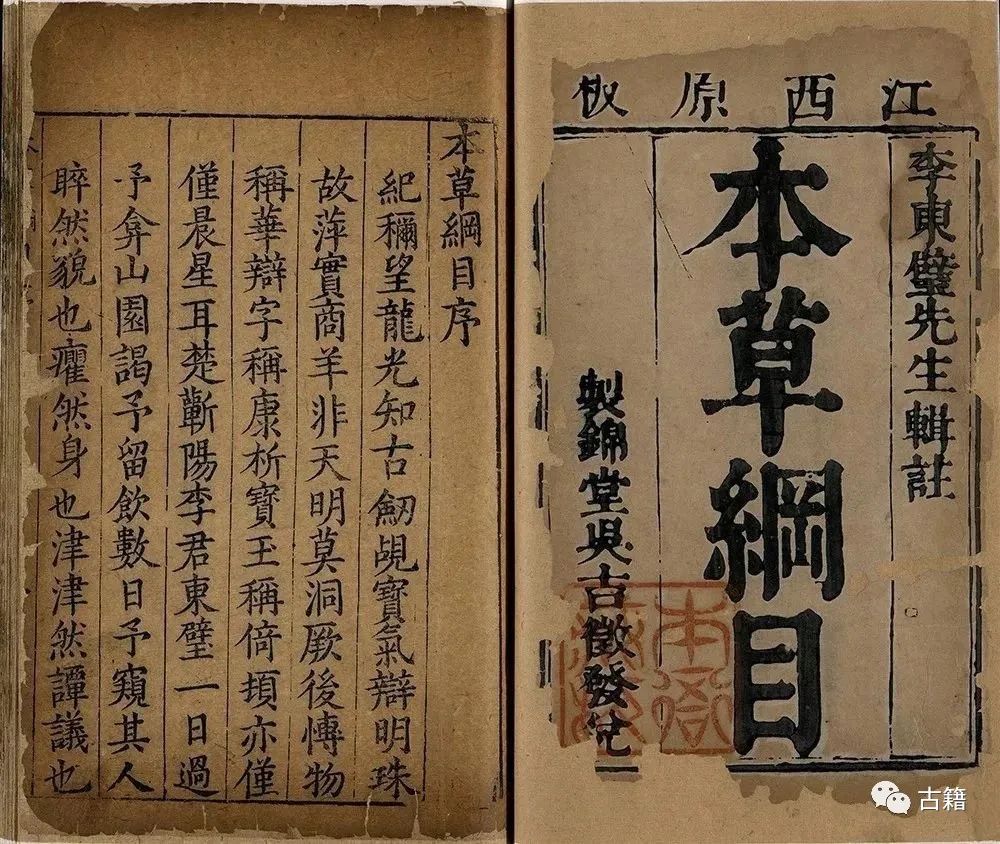 江西原板
李東璧先生輯註
本草綱目
製錦堂吳古徵發兌
本草綱目序
紀稱望龍光知古劒覘寶氣辯明珠
故萍實商羊非天明莫洞厥後博物
稱華辯字稱康析寶玉稱倚頓亦僅
僅晨星耳楚蘄陽李君東璧一日過
予弇山園謁予留飲數日予窺其人
睟然貌也癯然身也津津然譚議也
古籍